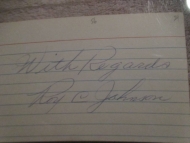 With Regards
Roy C. Johnson